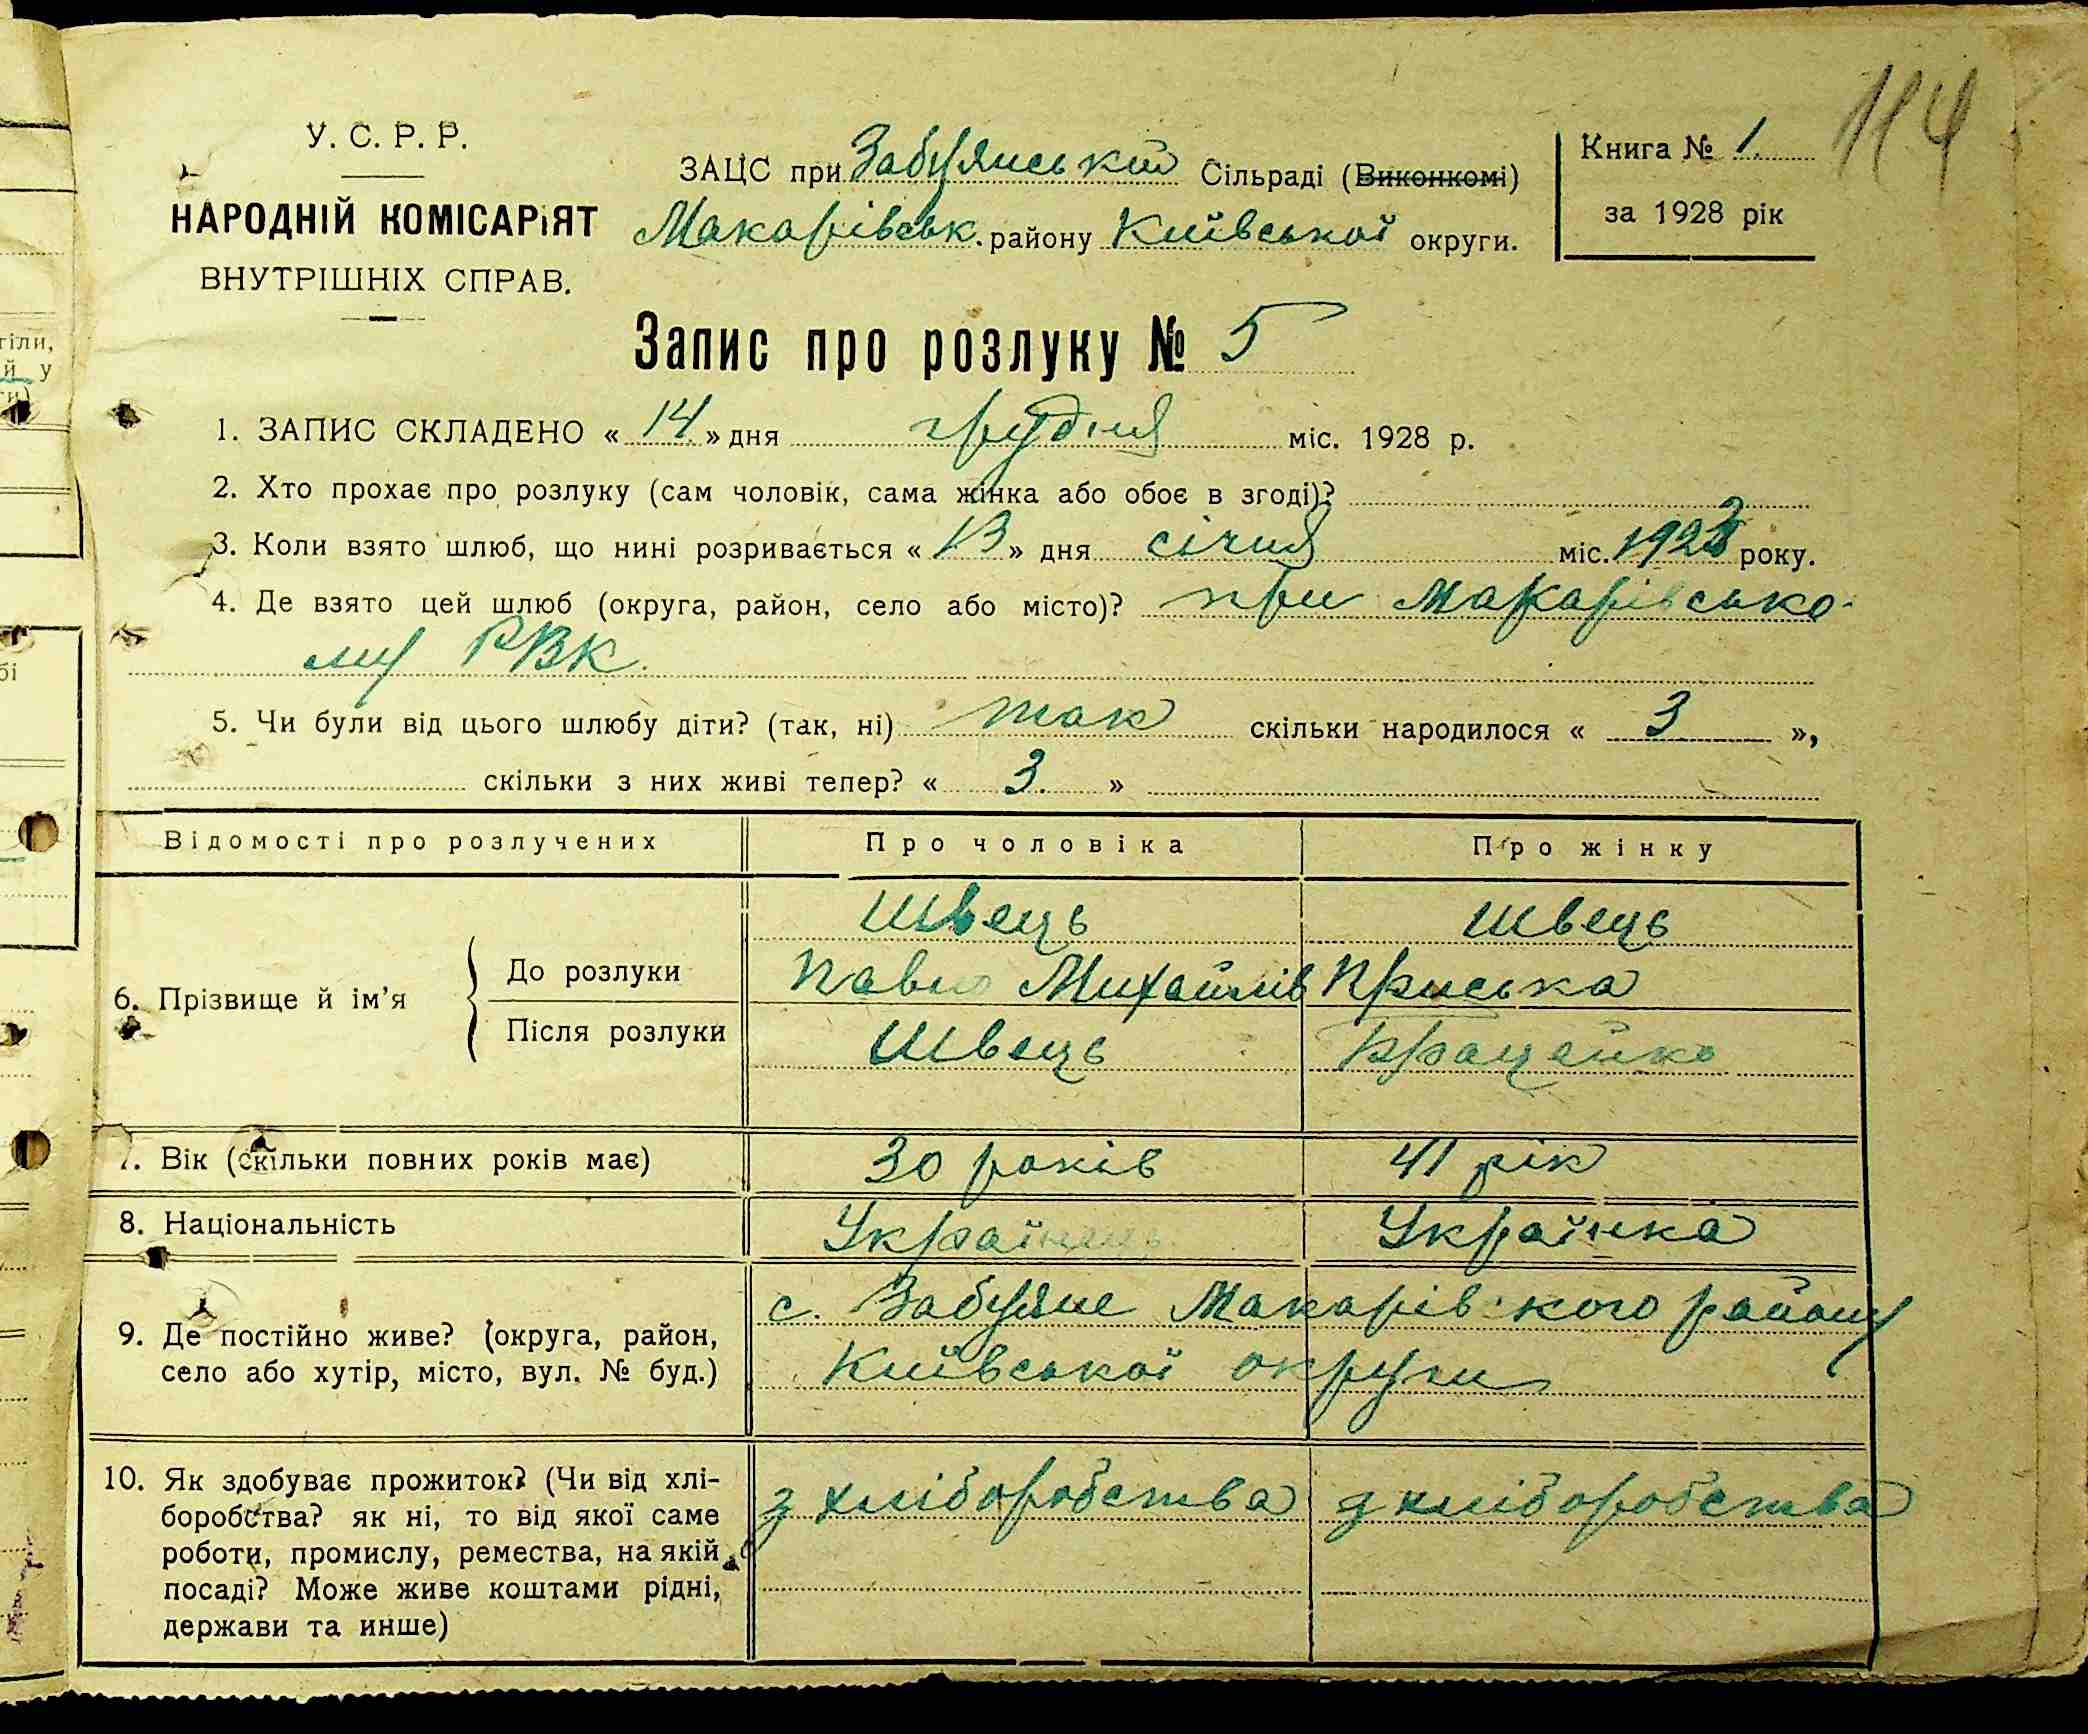 114
У. С. Р. Р.
НАРОДНІЙ КОМІСАРіЯТ
ВНУТРІШНІХ СПРАВ.
ЗАЦС при Забуянській Сільраді (Виконкомі)
Макарівськ. району Київської округи.
Книга № 1.
за 1928 рік
Запис про розлуку № 5
1. ЗАПИС СКЛАДЕНО « 14 » дня грудня міс. 1928 р.
2. Хто прохає про розлуку (сам чоловік, сама жінка або обоє в згоді)?
3. Коли взято шлюб, що нині розривається « 13 » дня січня міс. року.
4. Де взято цей шлюб (округа, район, село або місто)? при Макарівсько-
му РВК.
5. Чи були від цього шлюбу діти? (так, ні) так скільки народилося « 3 »,
скільки з них живі тепер? « 3. »
Відомості про розлучених Про чоловіка Про жінку
6. Прізвище й ім'я
До розлуки
Швець Швець
Павло Михайлів Приська
Після розлуки
Швець
7. Вік (скільки повних років має) 30 років 41 рік
8. Національність Українець Українка
9. Де постійно живе? (округа, район,
село або хутір, місто, вул. № буд.)
с. Забуяне Макарівського району
Київської округи
10. Як здобуває прожиток? (Чи від хлі-
боробства? як ні, то від якої саме
роботи, промислу, ремества, на якій
посаді? Може живе коштами рідні,
держави та инше)
з хліборобства з хліборобства
гіли,
й у
ти)
бі